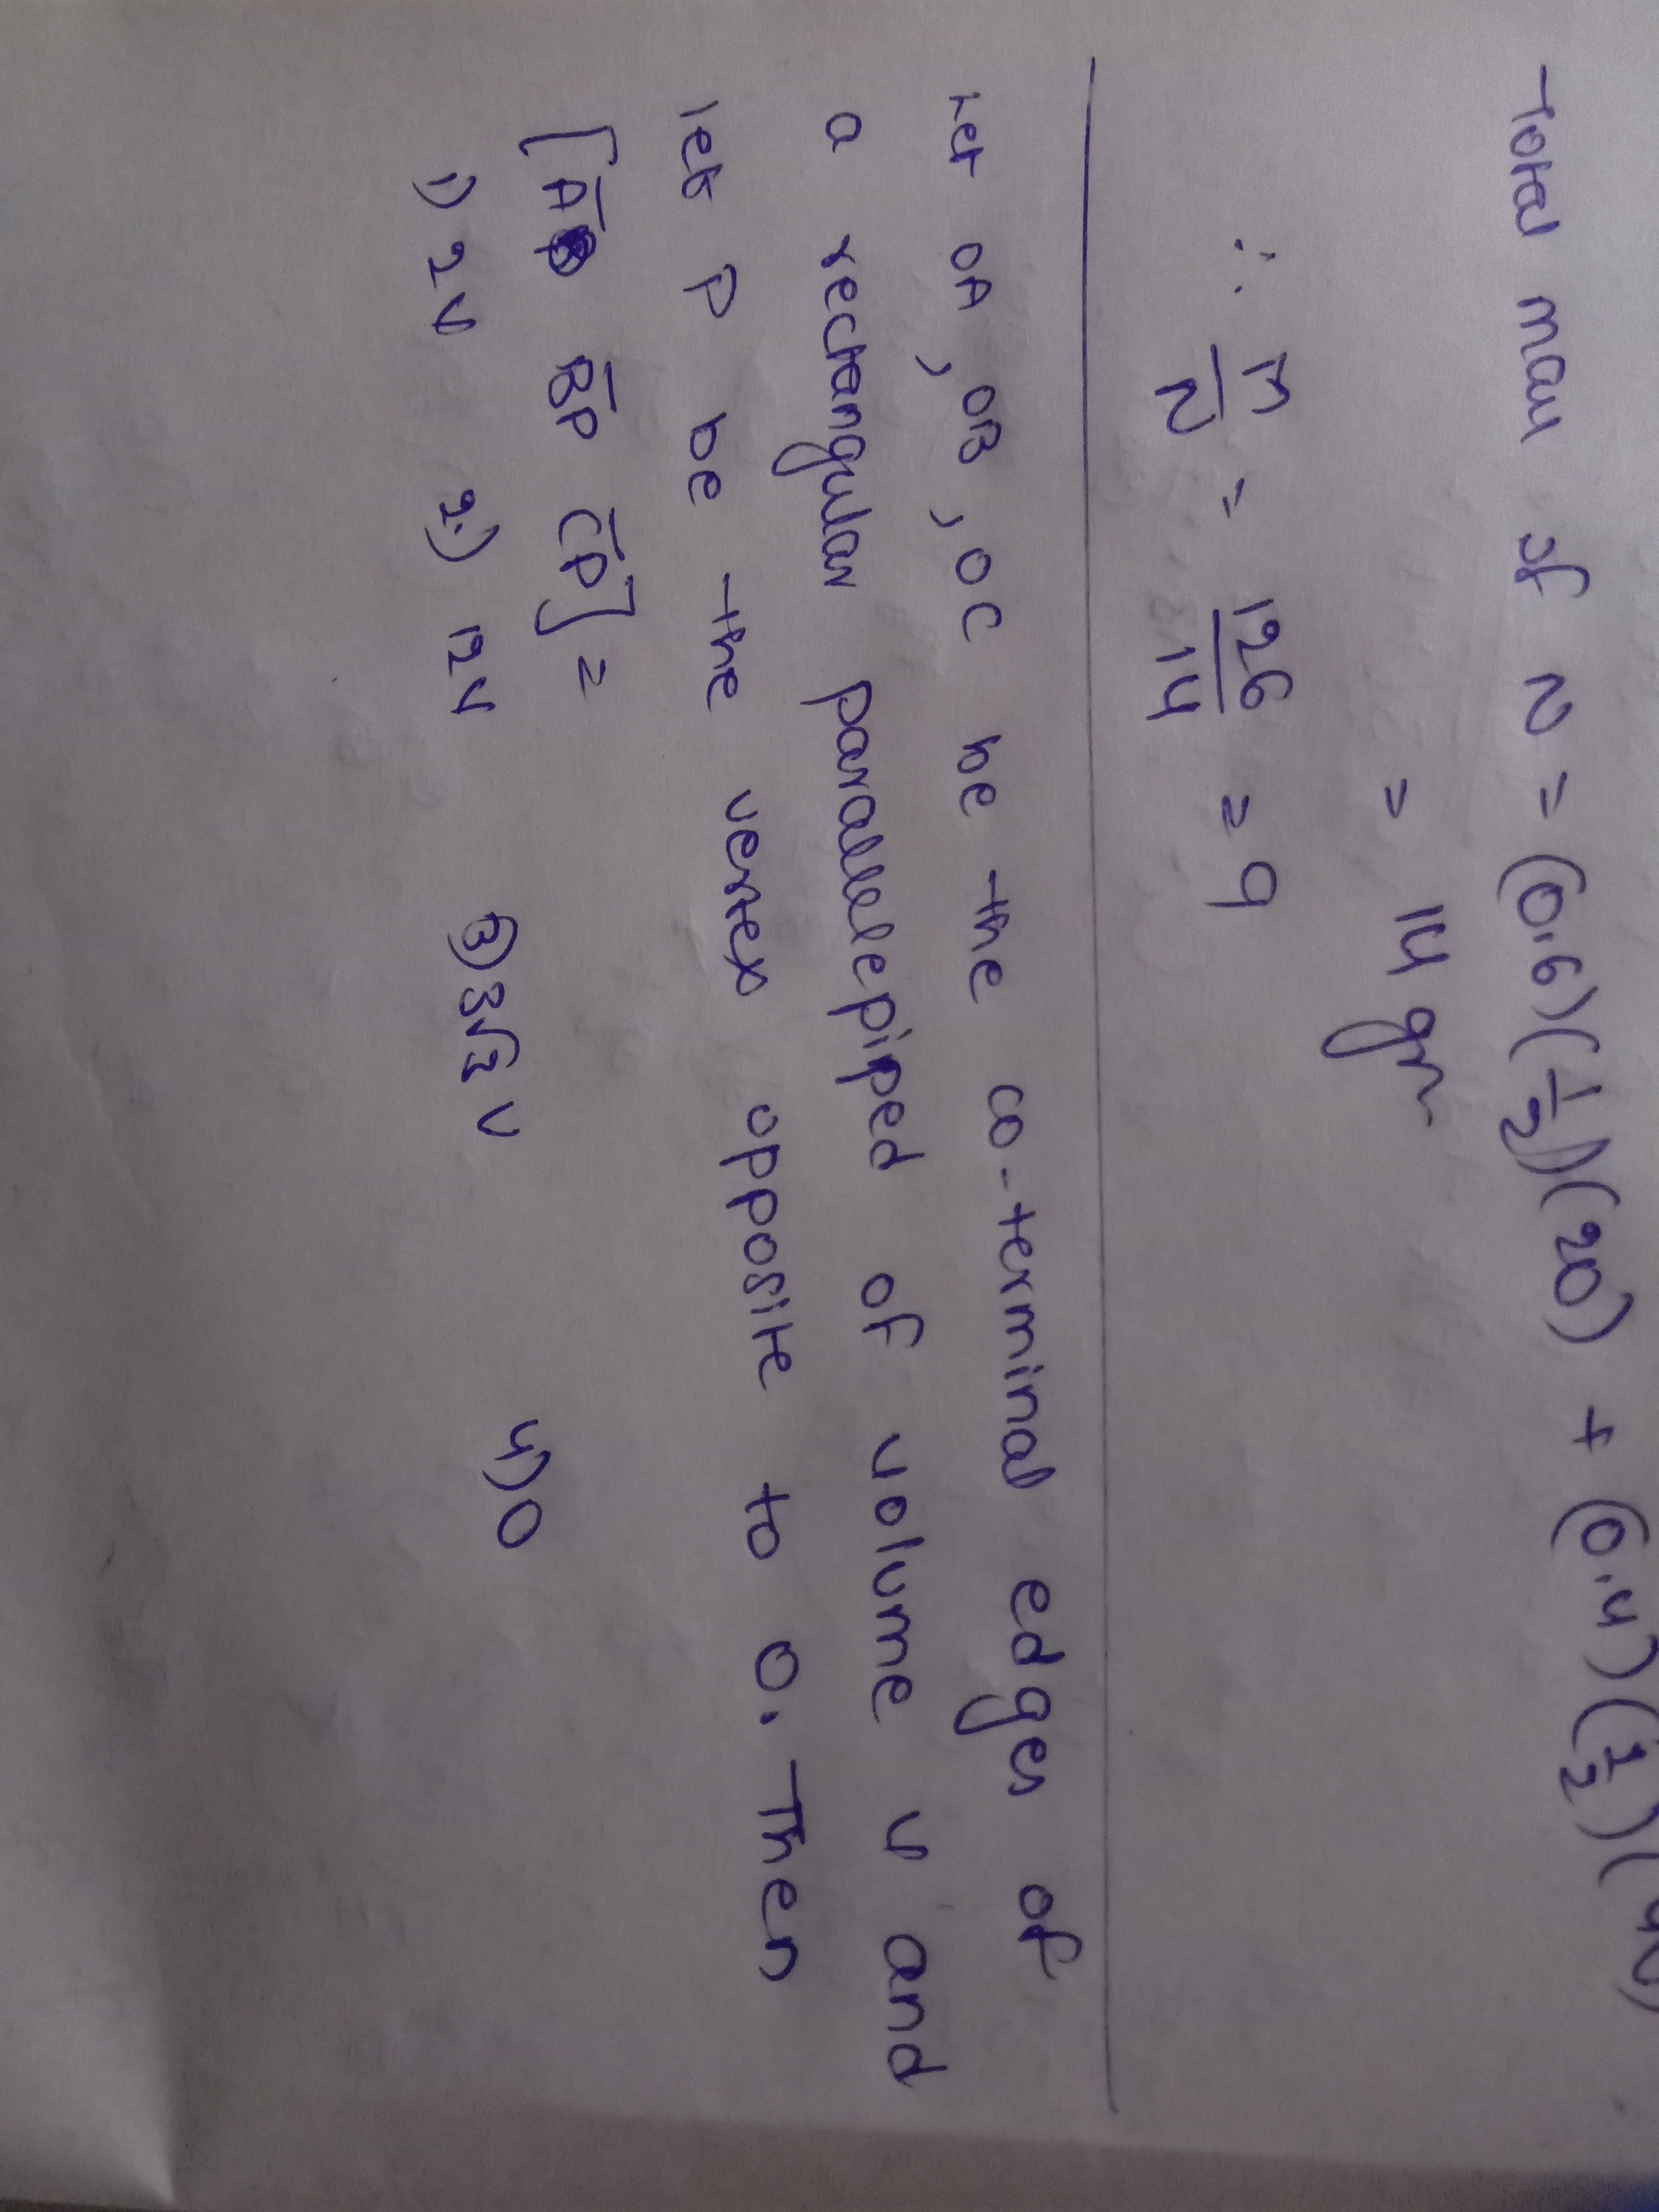 Total mass of N = (0.6)(1/2)(20) + (0.4)(1/2)(
= 14 gm
∴ M/N = 126/14 = 9
Let OA, OB, OC be the co-terminal edges of
a rectangular parallelepiped of volume V and
let P be the vertex opposite to O. Then
[A̅P̅ B̅P̅ C̅P̅] =
1) 2V 2.) 12V 3) 3√3 V 4) 0